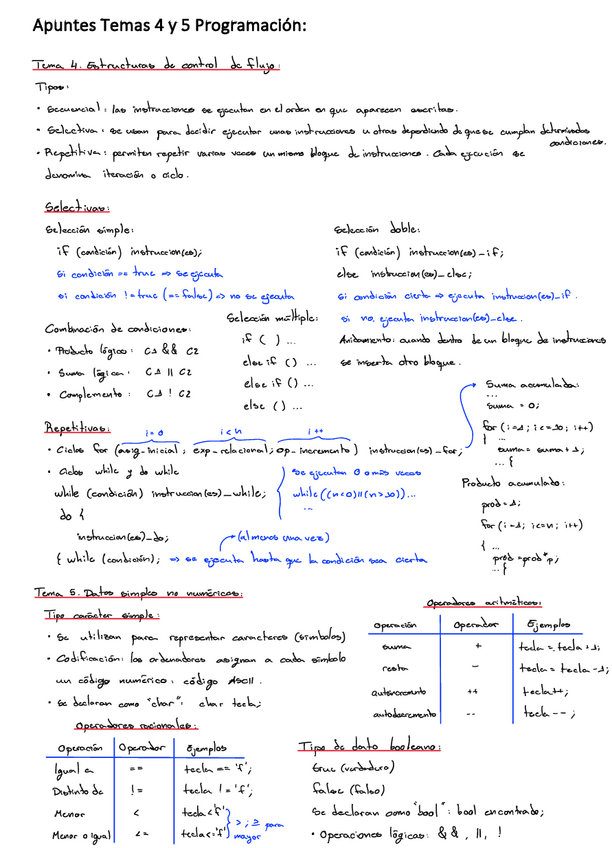 Apuntes Temas 4 y 5 Programación:
Tema 4. Estructuras de control de flujo:
Tipos:
• Secuencial: las instrucciones se ejecutan en el orden en que aparecen escritas.
• Selectiva: se usan para decidir ejecutar unas instrucciones u otras dependiendo de que se cumplan determinadas condiciones.
• Repetitiva: permiten repetir varias veces un mismo bloque de instrucciones. Cada ejecución se
denomina iteración o ciclo.
Selectivas:
Selección simple:
if (condición) instruccion(es);
si condición == true => se ejecuta
si condición != true (== false) => no se ejecuta
Selección doble:
if (condición) instruccion(es)_if;
else instruccion(es)_else;
si condición cierta => ejecuta instruccion(es)_if.
si no, ejecuta instruccion(es)_else.
Anidamiento: cuando dentro de un bloque de instrucciones
se inserta otro bloque.
Combinación de condiciones:
• Producto lógico: C1 && C2
• Suma lógica: C1 || C2
• Complemento: C1 ! C2
Selección múltiple:
if ( ) ...
else if () ...
else if () ...
else () ...
Repetitivas:
i=0 i<n i++
• Ciclos for (asig_inicial; exp_relacional; op_incremento) instruccion(es)_for;
• Ciclos while y do while
while (condición) instruccion(es)_while;
do {
instruccion(es)_do;
{ while (condición); => se ejecuta hasta que la condición sea cierta
(al menos una vez)
se ejecutan 0 o más veces
while((n<0)||(n>10))...
...
Suma acumulada:
...
suma = 0;
for (i=1; i<=10; i++)
{ ...
suma = suma + 1;
... {
Producto acumulado:
prod = 1;
for (i=1; i<=n; i++)
{ ...
prod = prod*p;
... {
Tema 5. Datos simples no numéricos:
Tipo carácter simple:
• Se utilizan para representar caracteres (símbolos)
• Codificación: los ordenadores asignan a cada símbolo
un código numérico: código ASCII.
• Se declaran como "char": char tecla;
Operadores aritméticos:
Operación Operador Ejemplos
suma + tecla = tecla + 1;
resta - tecla = tecla - 1;
autoincremento ++ tecla++;
autodecremento -- tecla--;
Operadores racionales:
Operación Operador Ejemplos
Igual a == tecla == 'f';
Distinto de != tecla != 'f';
Menor < tecla<'f';
Menor o igual <= tecla<='f';
>; ≥ para
mayor
Tipo de dato booleano:
true (verdadero)
false (falso)
Se declaran como "bool": bool encontrado;
• Operaciones lógicas: &&, ||, !